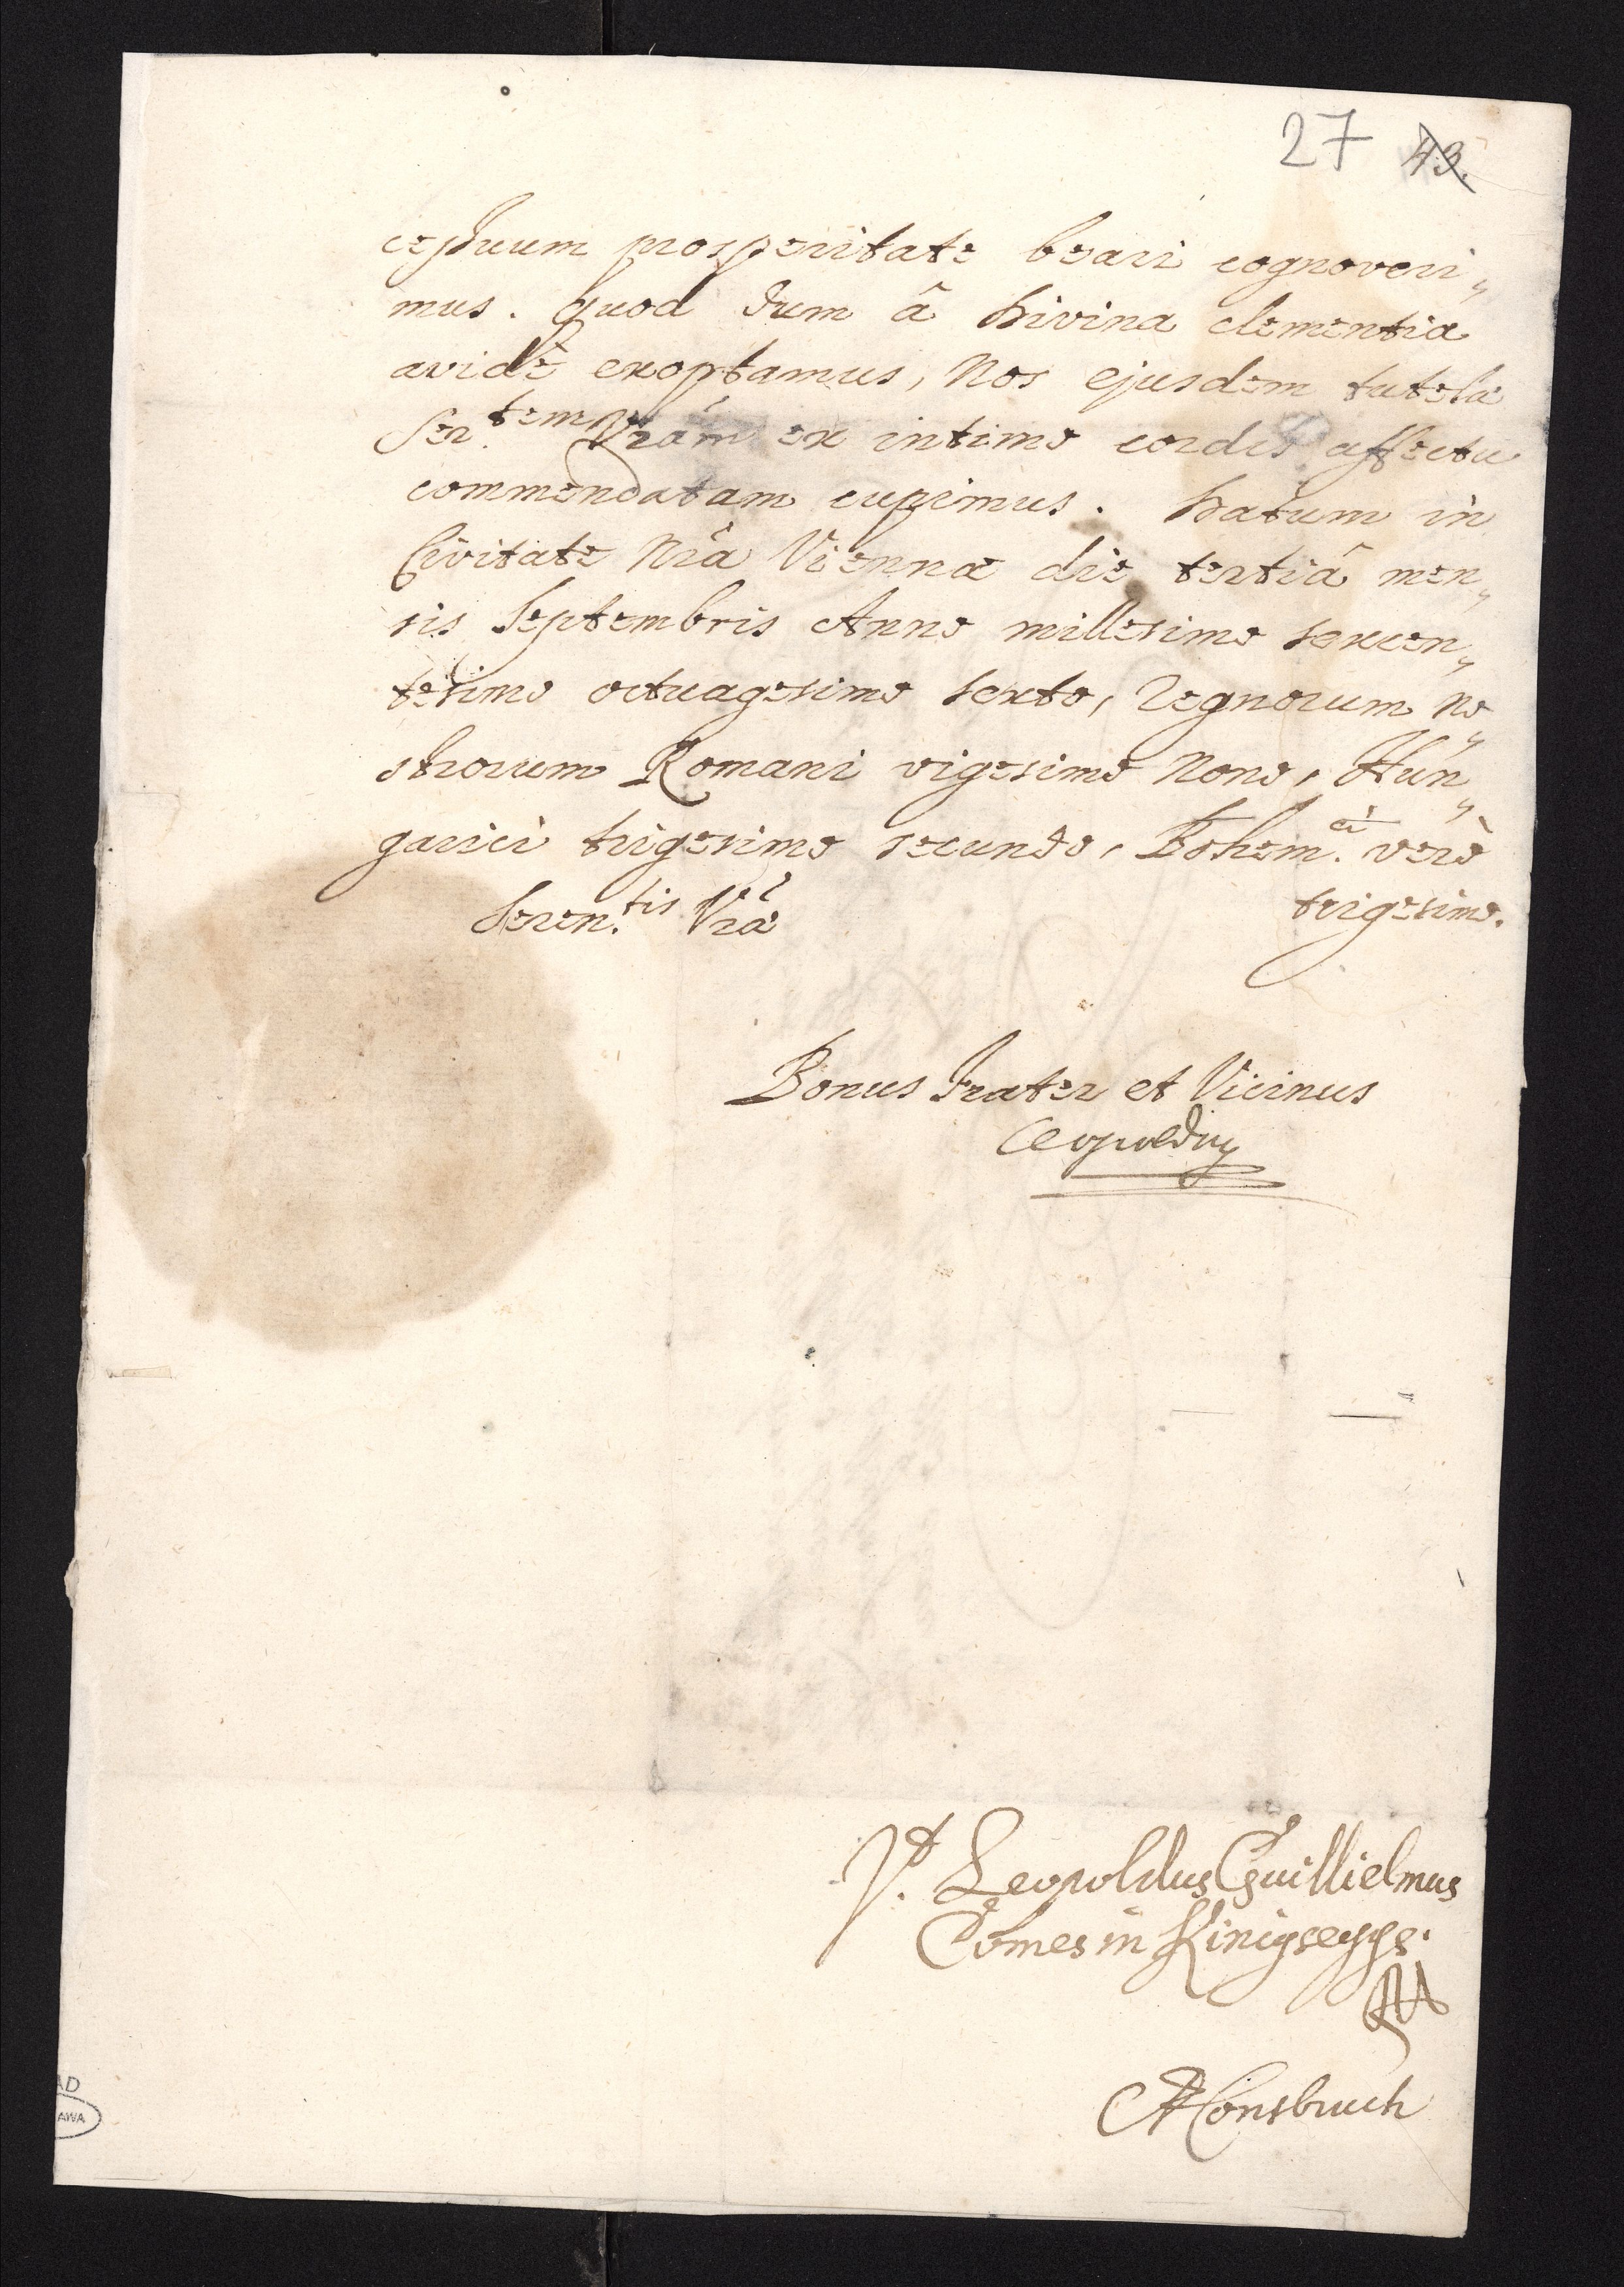 27 43.
cessuum prosperitate beari cognoveri„
mus. Quod dum â Divina clementia
avidè exoptamus, Nos ejusdem tutelæ
Ser.tem Vrãm ex intimo cordis affectu
commendatam cupimus. Datum in
Civitate Nrã Viennæ die tertiâ men„
sis Septembris Anno millesimo sexcen„
tesimo octuagesimo sexto, Regnorum No„
strorum Romani vigesimo Nono, Hun„
garici trigesimo secundo, Bohem.ci verò
trigesimo.
Seren.tis Vrã
Bonus Frater et Vicinus
Leopoldus
Vt. Leopoldus Guillielmus
Comes in Kinigsegge.
Consbruch
AD
AWA